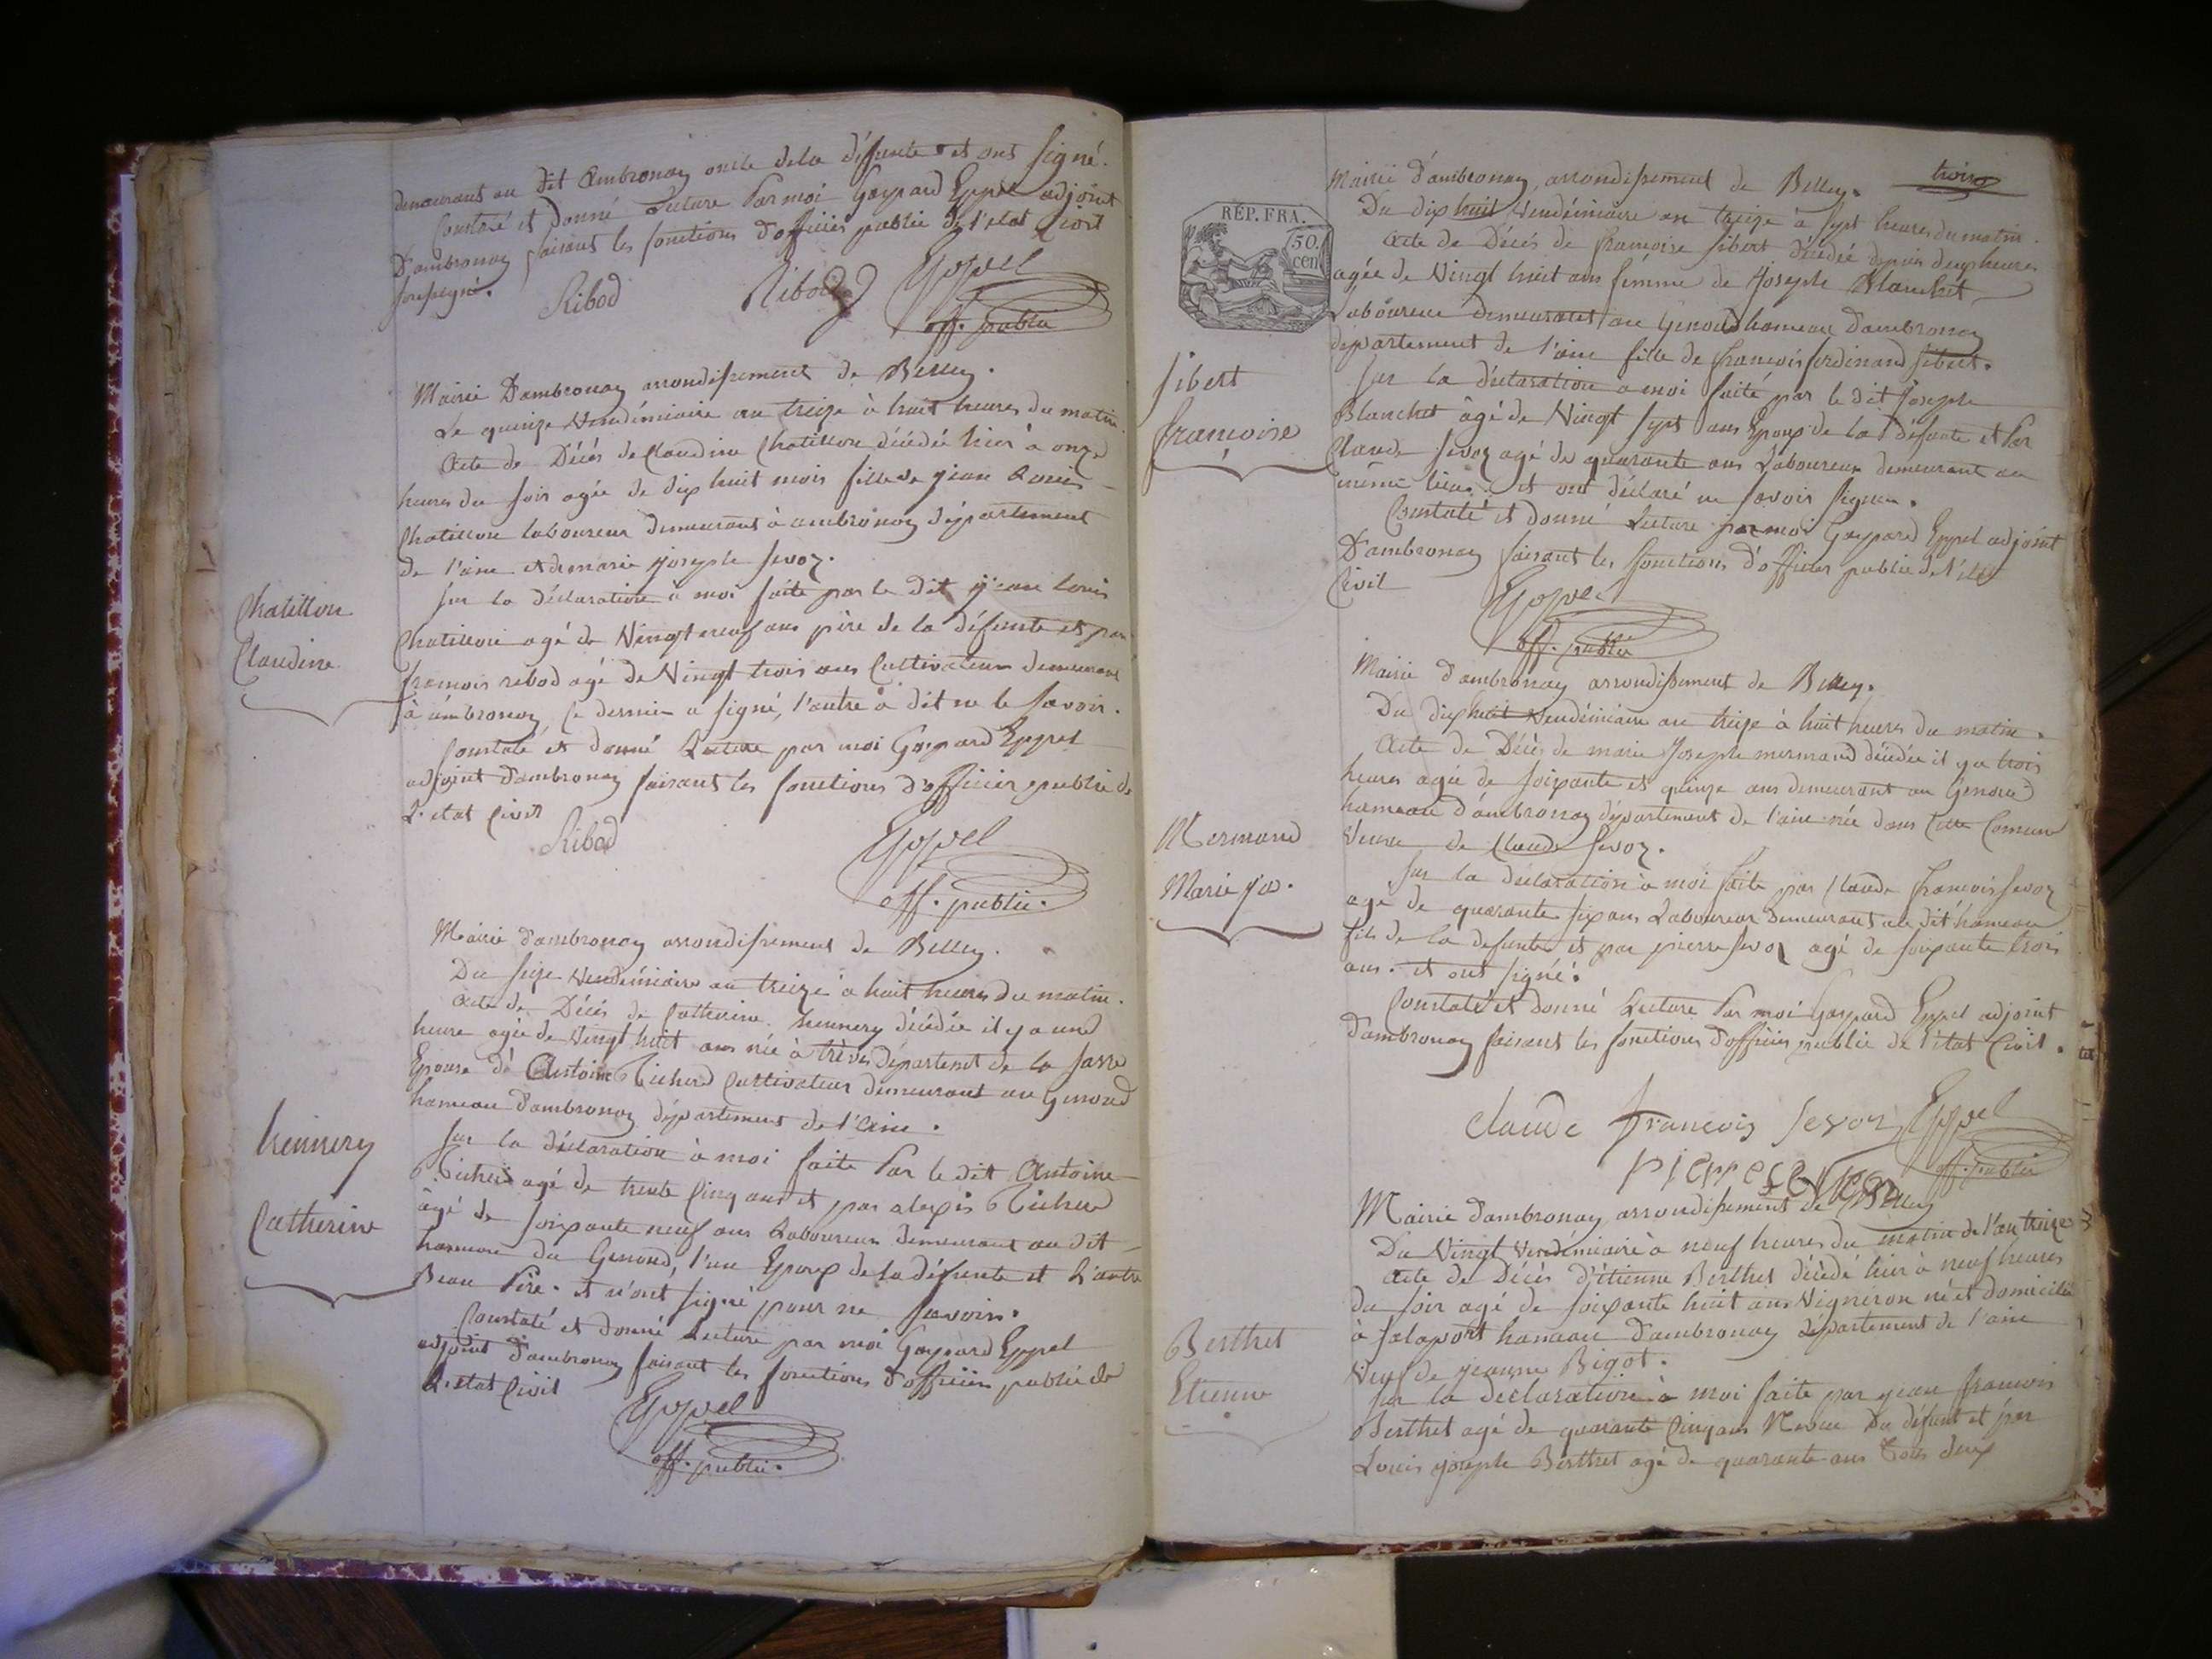 demeurant au dit Ambronay oncle dela défunte et ont signé.
Constaté et donné Lecture Par moi Gaspard Eppel adjoint
D'ambronay faisant les fonctions d'officier public de l'etat Civil
soussigné.
Ribod Ribod Eppel
off. public
Mairie D'ambronay arrondissement de Belley.
Le quinze Vendémiaire an treize à huit heures du matin.
Acte de Décés de Claudine Chatillon décédée hier à onze
heures du soir agée de dix huit mois fille de jean Louis
Chatillon laboureur demeurant à ambronay département
de l'ain et de marie joseph Sevoz.
Sur la déclaration à moi faite par le dit jean louis
Chatillon agé de Vingt neuf ans père de la défunte et par
françois rebod agé de Vingt trois ans Cultivateur demeurant
à ambronay, Ce dernier a signé, l'autre à dit ne le Savoir.
Constaté et donné Lecture par moi Gaspard Eppel
adjoint d'ambronay faisant les fonctions d'officier public de
L'etat Civil
Ribod
Eppel
off. public.
Chatillon
Claudine
Mairie d'ambronay arrondissement de Belley.
Du seize Vendémiaire an treize à huit heures du matin.
Acte de Décés de Catherine hennery décédée il y a une
heure agée de Vingt huit ans née à trèves département de la Sarre
Epouse de Antoine Ticherd Cultivateur demeurant au genoud
hameau d'ambronay département de l'ain.
Sur la déclaration à moi faite Par le dit Antoine
agé de trente Cinq ans et par alexis
âgé de soixante neuf ans Laboureur demeurant au dit
hameau du Genoud, l'un Epoux de la défunte et L'autre
Beau Père. et n'ont signé pour ne savoir.
Constaté et donné Lecture par moi Gaspard Eppel
adjoint d'ambronay faisant les fonctions d'officier public de
L'etat Civil
Eppel
off. public.
hennery
Catherine
trois
Mairie d'ambronay, arrondissement de Belley.
Du dix huit Vendémiaire an treize à sept heures du matin.
Acte de Décés de françoise sibert décédée depuis deux heures
agée de Vingt huit ans femme de Joseph Blanchet
Laboureur demeurant au Genoud hameau d'ambronay
département de l'ain fille de françois ferdinand Sibert.
Sur la déclaration à moi faite par le dit Joseph
Blanchet âgé de Vingt sept ans Epoux de la défunte et Par
Claude Sevoz agé de quarante ans Laboureur demeurant au
même lieu. et ont déclaré ne savoir signer.
Constaté et donné Lecture par moi Gaspard Eppel adjoint
D'ambronay faisant les fonctions d'officier public de l'etat
Civil
Eppel
off. public
RÉP. FRA.
50.
cen
Sibert
françoise
Mairie d'ambronay arrondissement de Belley.
Du dix huit Vendémiaire an treize à huit heures du matin.
Acte de Décès de marie Joseph mermand décédée il y a trois
heures agée de soixante et quinze ans demeurant au Genoud
hameau d'ambronay département de l'ain née dans Cette Comune
Veuve de Claude Sevoz.
Sur la déclaration à moi faite par Claude françois Sevoz
agé de quarante six ans Laboureur demeurant au dit hameau
fils de la defunte et par pierre Sevoz agé de soixante trois
ans. et ont signé.
Constaté et donné Lecture Par moi Gaspard Eppel adjoint
d'ambronay faisant les fonctions d'officier public de l'état Civil.
Claude françois Sevoz Eppel
pierre sevoz off. public
Mermand
Marie jo.
Mairie d'ambronay arrondissement de Belley
Du Vingt Vendémiaire à neuf heures du matin de l'an treize
Acte de Décès d'étienne Berthet décédé hier à neuf heures
du soir agé de soixante huit ans Vigneron né et domicilié
à salaport hameau d'ambronay département de l'ain
Veuf de jeanne Bigot.
Sur la declaration à moi faite par jean françois
Berthet agé de quarante Cinq ans Neveu Du défunt et par
Louis joseph Berthet agé de quarante ans Tous deux
Berthet
Etienne